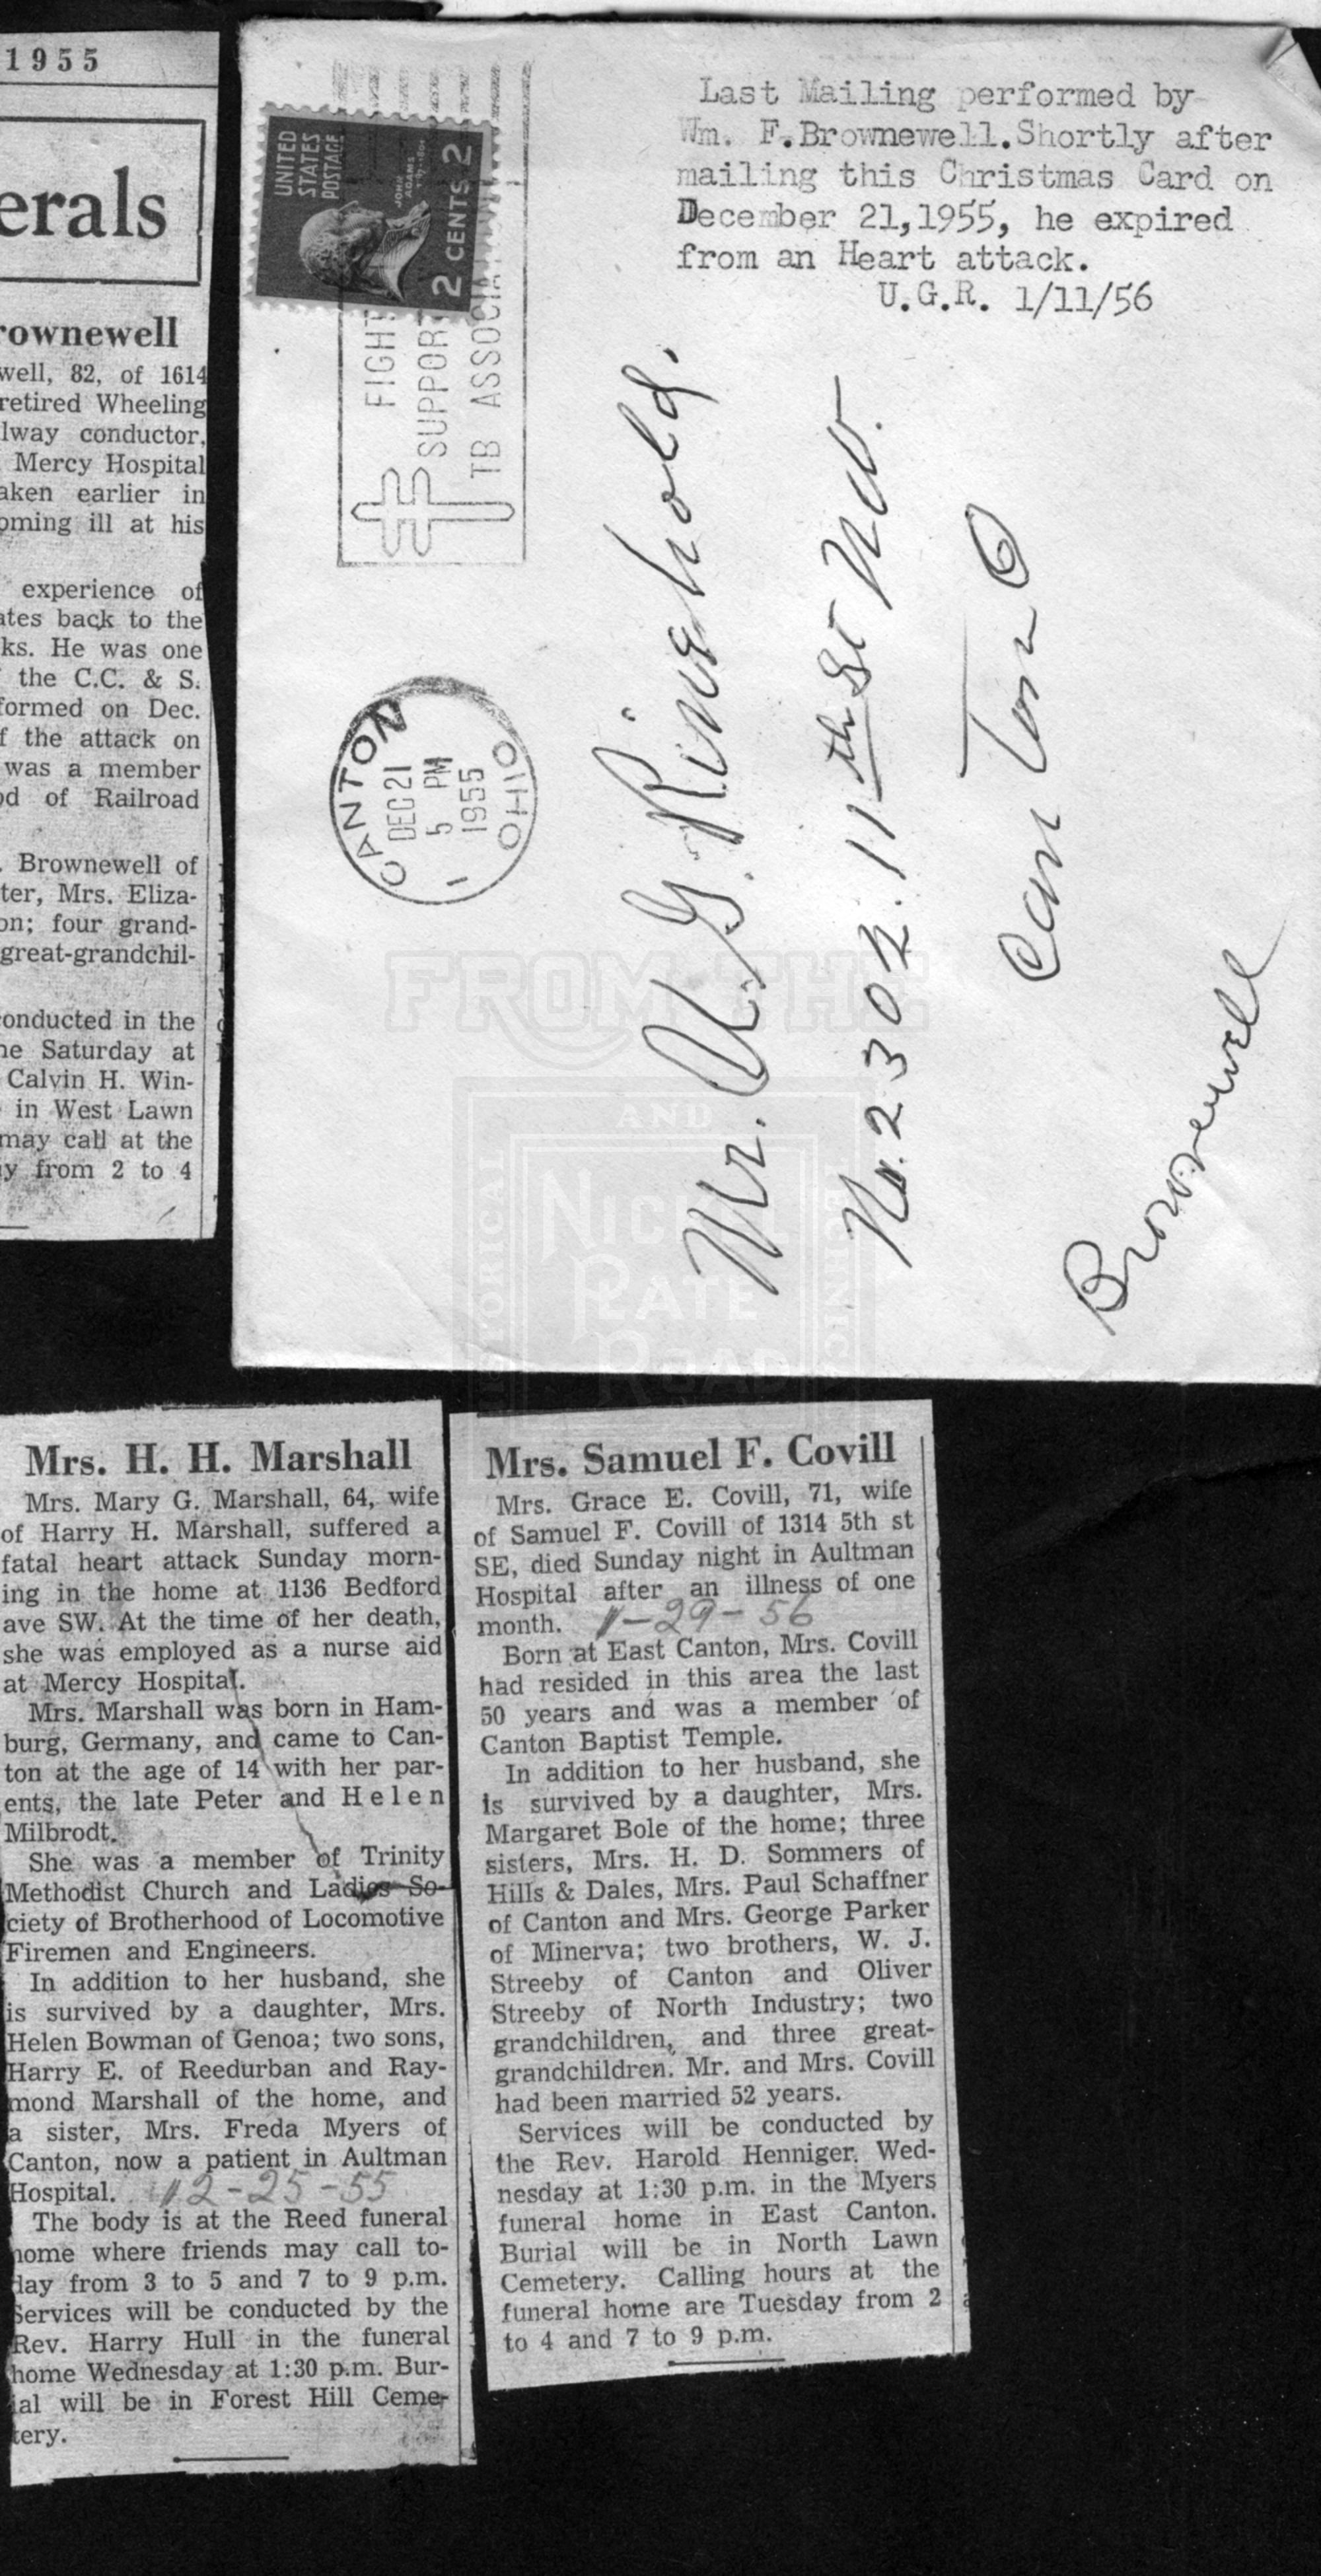 1955
erals
rownewell
well, 82, of 1614
retired Wheeling
lway conductor,
Mercy Hospital
aken earlier in
oming ill at his
experience of
ates back to the
ks. He was one
the C.C. & S.
formed on Dec.
f the attack on
was a member
od of Railroad
. Brownewell of
ter, Mrs. Eliza-
on; four grand-
great-grandchil-
conducted in the
ne Saturday at
Calvin H. Win-
in West Lawn
may call at the
y from 2 to 4
Last Mailing performed by
Wm. F.Brownewell.Shortly after
mailing this Christmas Card on
December 21,1955, he expired
from an Heart attack.
U.G.R. 1/11/56
UNITED
STATES
POSTAGE
JOHN
ADAMS
2 CENTS 2
FIGHT
SUPPOR
TB ASSOCIA
CANTON
DEC 21
5 PM
1955
OHIO
1
Mr. U. G. Rinehold.
No. 2302. 11th St NW.
Canton O
Brownewell
FROM THE
AND
NICKEL
PLATE
ROAD
Mrs. H. H. Marshall
Mrs. Mary G. Marshall, 64, wife
of Harry H. Marshall, suffered a
fatal heart attack Sunday morn-
ing in the home at 1136 Bedford
ave SW. At the time of her death,
she was employed as a nurse aid
at Mercy Hospital.
Mrs. Marshall was born in Ham-
burg, Germany, and came to Can-
ton at the age of 14 with her par-
ents, the late Peter and Helen
Milbrodt.
She was a member of Trinity
Methodist Church and Ladies So-
ciety of Brotherhood of Locomotive
Firemen and Engineers.
In addition to her husband, she
is survived by a daughter, Mrs.
Helen Bowman of Genoa; two sons,
Harry E. of Reedurban and Ray-
mond Marshall of the home, and
a sister, Mrs. Freda Myers of
Canton, now a patient in Aultman
Hospital. 12-25-55
The body is at the Reed funeral
home where friends may call to-
day from 3 to 5 and 7 to 9 p.m.
Services will be conducted by the
Rev. Harry Hull in the funeral
home Wednesday at 1:30 p.m. Bur-
ial will be in Forest Hill Ceme-
tery.
Mrs. Samuel F. Covill
Mrs. Grace E. Covill, 71, wife
of Samuel F. Covill of 1314 5th st
SE, died Sunday night in Aultman
Hospital after an illness of one
month. 1-29-56
Born at East Canton, Mrs. Covill
had resided in this area the last
50 years and was a member of
Canton Baptist Temple.
In addition to her husband, she
is survived by a daughter, Mrs.
Margaret Bole of the home; three
sisters, Mrs. H. D. Sommers of
Hills & Dales, Mrs. Paul Schaffner
of Canton and Mrs. George Parker
of Minerva; two brothers, W. J.
Streeby of Canton and Oliver
Streeby of North Industry; two
grandchildren, and three great-
grandchildren. Mr. and Mrs. Covill
had been married 52 years.
Services will be conducted by
the Rev. Harold Henniger. Wed-
nesday at 1:30 p.m. in the Myers
funeral home in East Canton.
Burial will be in North Lawn
Cemetery. Calling hours at the
funeral home are Tuesday from 2
to 4 and 7 to 9 p.m.